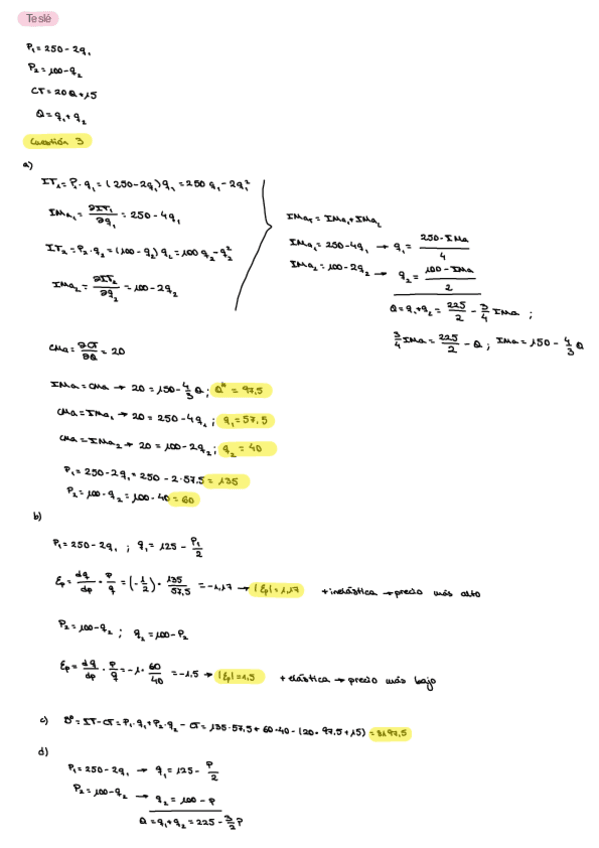 Teslé
P₁ = 250 - 2q₁
P₂ = 100 - q₂
CT = 20Q + 15
Q = q₁ + q₂
Cuestión 3
a)
IT₁ = P₁ · q₁ = (250 - 2q₁) q₁ = 250 q₁ - 2q₁²
IMa₁ = ∂IT₁/∂q₁ = 250 - 4q₁
IT₂ = P₂ · q₂ = (100 - q₂) q₂ = 100 q₂ - q₂²
IMa₂ = ∂IT₂/∂q₂ = 100 - 2q₂
IMaT = IMa₁ + IMa₂
IMa₁ = 250 - 4q₁ → q₁ = (250 - IMa)/4
IMa₂ = 100 - 2q₂ → q₂ = (100 - IMa)/2
Q = q₁ + q₂ = 225/2 - 3/4 IMa ;
3/4 IMa = 225/2 - Q ; IMa = 150 - 4/3 Q
CMa = ∂CT/∂Q = 20
IMa = CMa → 20 = 150 - 4/3 Q ; Q* = 97,5
CMa = IMa₁ → 20 = 250 - 4q₁ ; q₁ = 57,5
CMa = IMa₂ → 20 = 100 - 2q₂ ; q₂ = 40
P₁ = 250 - 2q₁ = 250 - 2·57,5 = 135
P₂ = 100 - q₂ = 100 - 40 = 60
b)
P₁ = 250 - 2q₁ ; q₁ = 125 - P₁/2
Ep = dq/dp · P/q = (-1/2) · 135/57,5 = -1,17 → |Ep| = 1,17 + inelástica → precio más alto
P₂ = 100 - q₂ ; q₂ = 100 - P₂
Ep = dq/dp · P/q = -1 · 60/40 = -1,5 → |Ep| = 1,5 + elástica → precio más bajo
c) Bº = IT - CT = P₁ · q₁ + P₂ · q₂ - CT = 135 · 57,5 + 60 · 40 - (20 · 97,5 + 15) = 8197,5
d)
P₁ = 250 - 2q₁ → q₁ = 125 - P/2
P₂ = 100 - q₂ → q₂ = 100 - P
Q = q₁ + q₂ = 225 - 3/2 P